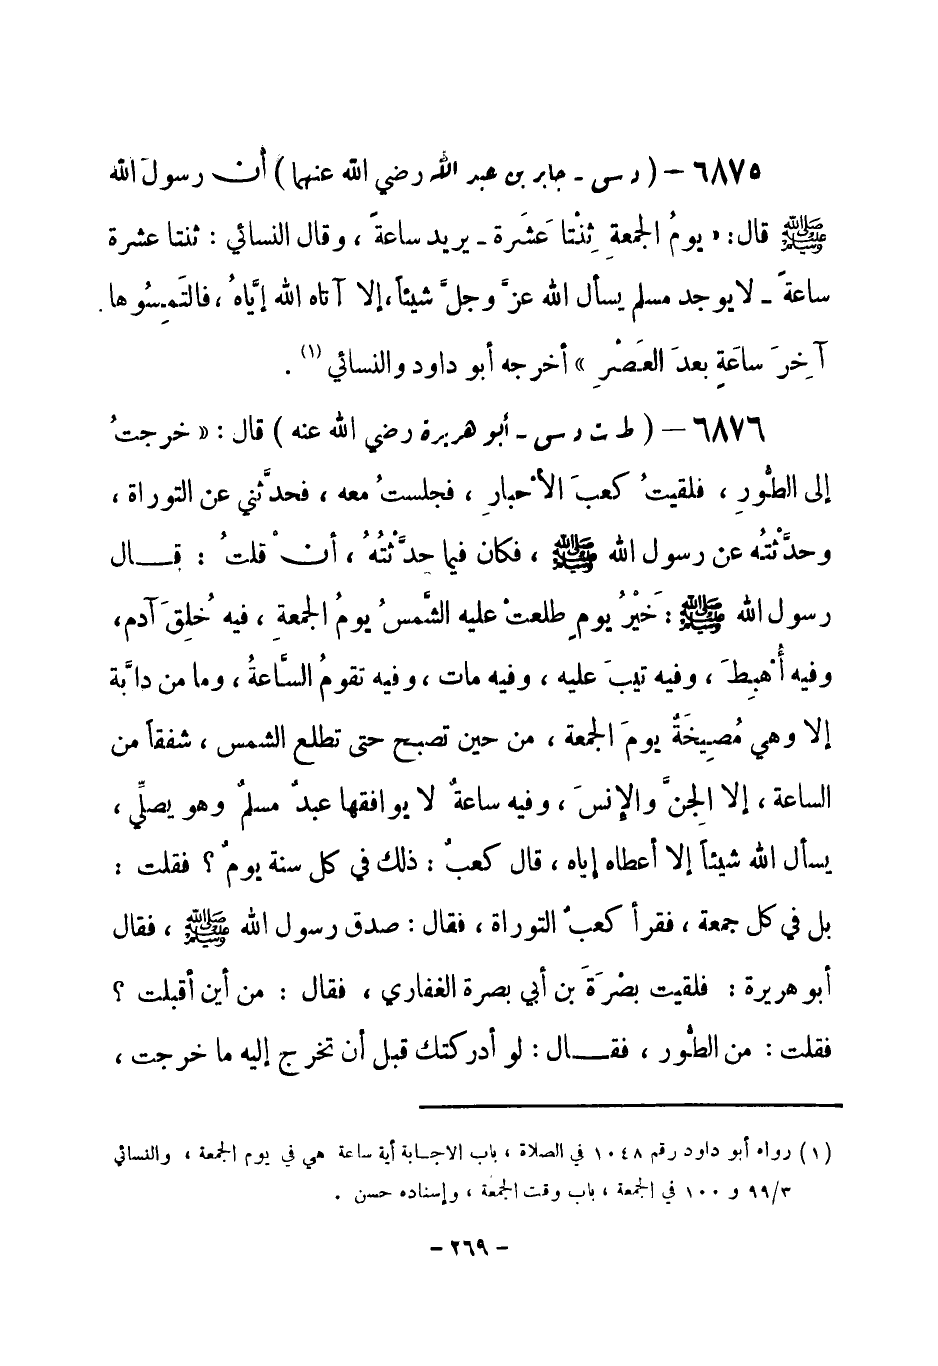 ٦٨٧٥ – ( د س - جابر بن عبد الله رضي الله عنهما ) أن رسولَ الله
ﷺ قال: « يومُ الجمعةِ ثِنْتا عَشَرة - يريد ساعةً ، وقال النسائي : ثنتا عشرة
ساعةً - لا يوجد مسلم يسأل الله عزَّ وجلَّ شيئاً، إلا آتاه الله إيَّاهُ ، فالتَمِسُوها
آخِرَ ساعَةٍ بعدَ العَصْرِ » أخرجه أبو داود والنسائي (١) .
٦٨٧٦ – ( ط ت د س - أبو هريرة رضي الله عنه ) قال : « خرجتُ
إلى الطُّورِ ، فلقيتُ كعبَ الأحبارِ ، فجلستُ معه ، فحدَّثني عن التوراة ،
وحدَّثتُه عن رسول الله ﷺ ، فكان فيما حدَّثْتُهُ ، أنْ قلتُ : قال
رسول الله ﷺ : خَيْرُ يومٍ طلعتْ عليه الشَّمسُ يومُ الجمعةِ ، فيه خُلِقَ آدم،
وفيه أُهبِطَ ، وفيه تيبَ عليه ، وفيه مات ، وفيه تقومُ السَّاعةُ ، وما من دابَّة
إلا وهي مُصِيخَةٌ يومَ الجمعة ، من حين تصبح حتى تطلع الشمس ، شفقاً من
الساعة ، إلا الجِنَّ والإنسَ ، وفيه ساعةٌ لا يوافقها عبدٌ مسلمٌ وهو يصلِّي ،
يسأل الله شيئاً إلا أعطاه إياه ، قال كعبٌ : ذلك في كل سنة يومٌ ؟ فقلت :
بل في كل جمعة ، فقرأ كعبٌ التوراة ، فقال : صدق رسول الله ﷺ ، فقال
أبو هريرة : فلقيت بصْرَةَ بن أبي بصرة الغفاري ، فقال : من أين أقبلت ؟
فقلت : من الطُّور ، فقال : لو أدركتك قبل أن تخرج إليه ما خرجت ،
(١) رواه أبو داود رقم ١٠٤٨ في الصلاة ، باب الاجابة أية ساعة هي في يوم الجمعة ، والنسائي
٩٩/٣ و ١٠٠ في الجمعة ، باب وقت الجمعة ، وإسناده حسن .
- ٢٦٩ -